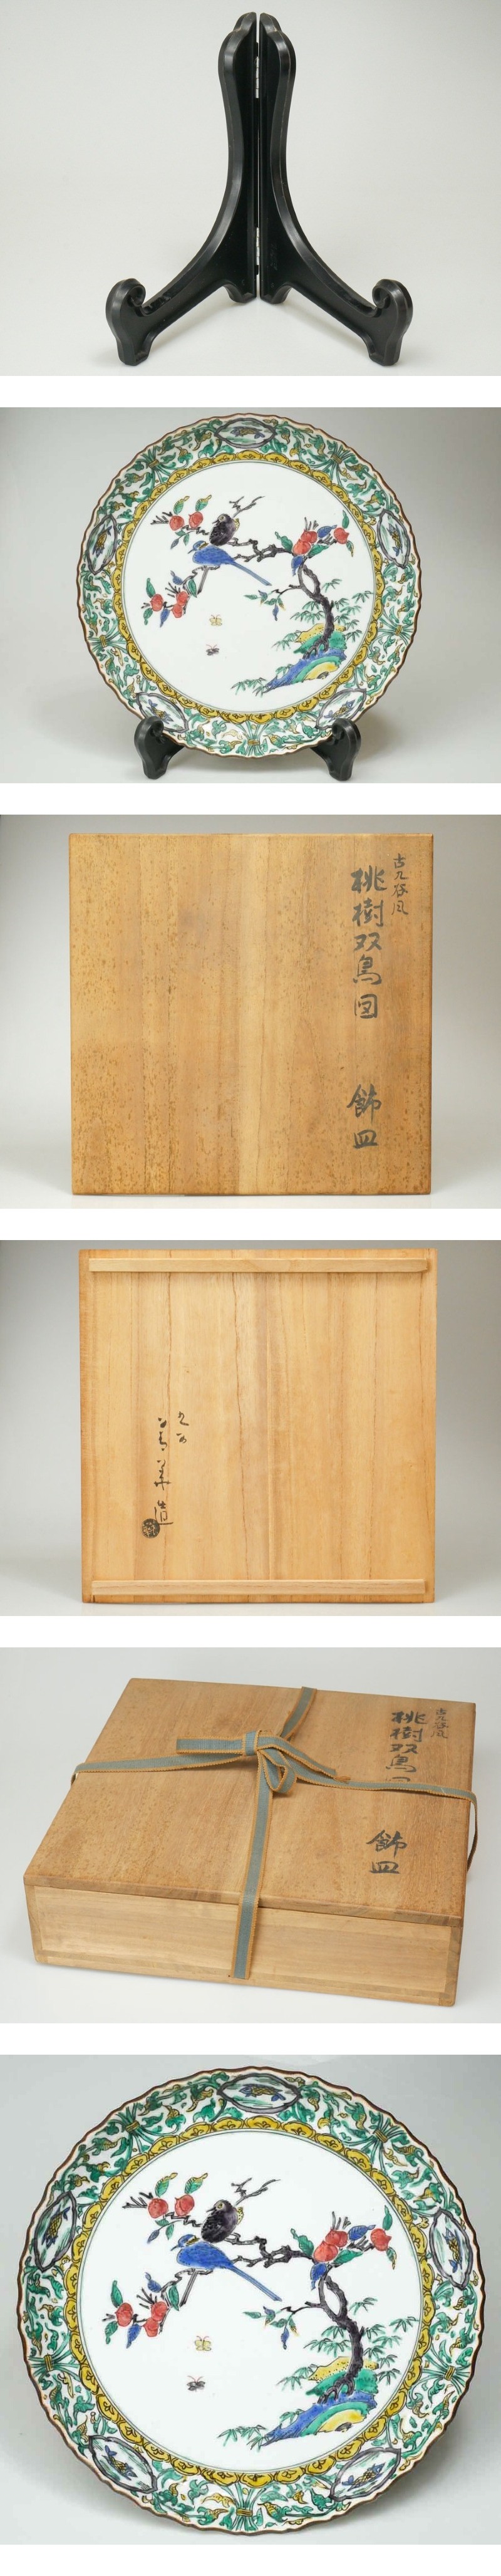 古九谷風
桃樹双鳥図
飾皿
古九谷風
桃樹双鳥
飾皿